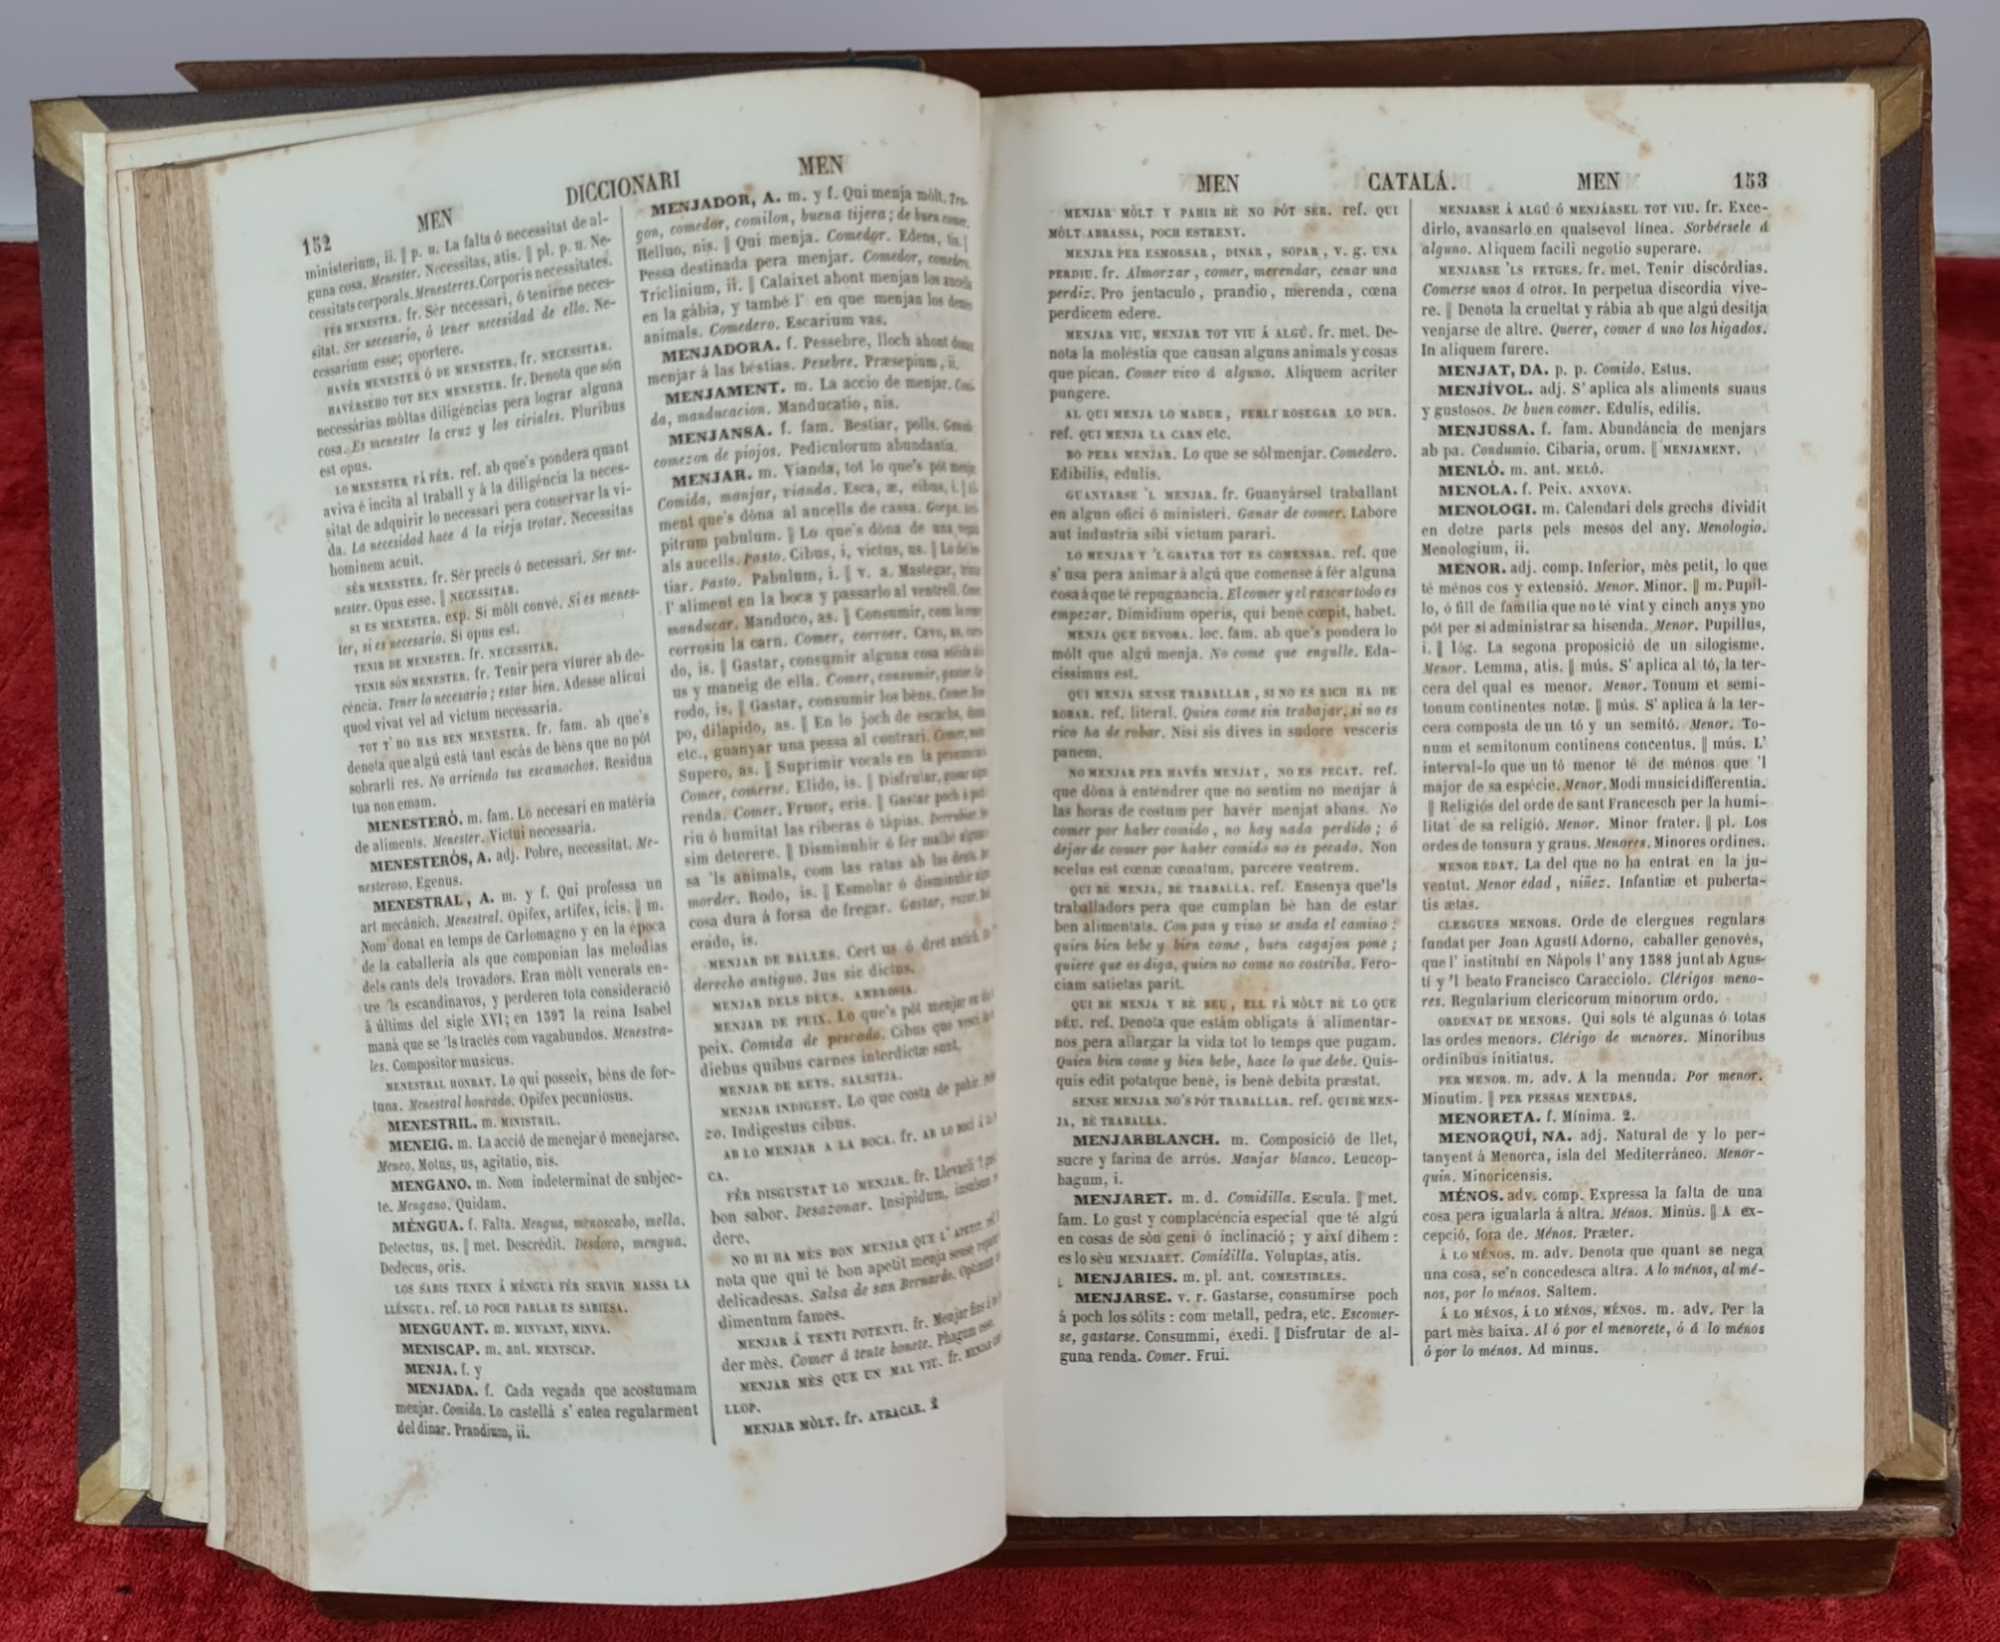 152
MEN
DICCIONARI
MEN
ministerium, ii. ‖ p. u. La falta ó necessitat de al-
guna cosa. Menester. Necessitas, atis. ‖ pl. p. u. Ne-
cessitats corporals. Menesteres. Corporis necessitates.
FÉR MENESTER. fr. Sèr necessari, ó tenirne neces-
sitat. Ser necesario, ó tener necesidad de ello. Ne-
cessarium esse; oportere.
HAVÉR MENESTER Ó DE MENESTER. fr. NECESSITAR.
HAVÉRSEHO TOT BEN MENESTER. fr. Denota que són
necessárias móltas diligéncias pera lograr alguna
cosa. Es menester la cruz y los ciriales. Pluribus
est opus.
LO MENESTER FÁ FÉR. ref. ab que's pondera quant
aviva é incita al traball y á la diligéncia la neces-
sitat de adquirir lo necessari pera conservar la vi-
da. La necesidad hace á la vieja trotar. Necessitas
hominem acuit.
SÈR MENESTER. fr. Sèr precis ó necessari. Ser me-
nester. Opus esse. ‖ NECESSITAR.
SI ES MENESTER. exp. Si mòlt convé. Si es menes-
ter, si es necesario. Si opus est.
TENIR DE MENESTER. fr. NECESSITAR.
TENIR SÓN MENESTER. fr. Tenir pera viurer ab de-
céncia. Tener lo necesario; estar bien. Adesse alicui
quod vivat vel ad victum necessaria.
TOT T' HO HAS BEN MENESTER. fr. fam. ab que's
denota que algú está tant escás de bèns que no pót
sobrarli res. No arriendo tus escamochos. Residua
tua non emam.
MENESTERÓ. m. fam. Lo necesari en matéria
de aliments. Menester. Victui necessaria.
MENESTERÓS, A. adj. Pobre, necessitat. Me-
nesteroso. Egenus.
MENESTRAL, A. m. y f. Qui professa un
art mecánich. Menestral. Opifex, artifex, icis. ‖ m.
Nom donat en temps de Carlomagno y en la época
de la caballeria als que componian las melodias
dels cants dels trovadors. Eran mòlt venerats en-
tre 'ls escandinavos, y perderen tota consideració
á últims del sigle XVI; en 1597 la reina Isabel
maná que se 'ls tractés com vagabundos. Menestra-
les. Compositor musicus.
MENESTRAL HONRAT. Lo qui posseix, béns de for-
tuna. Menestral honrado. Opifex pecuniosus.
MENESTRIL. m. MINISTRIL.
MENEIG. m. La acció de menejar ó menejarse.
Meneo. Motus, us, agitatio, nis.
MENGANO. m. Nom indeterminat de subjec-
te. Mengano. Quidam.
MÉNGUA. f. Falta. Mengua, menoscabo, mella.
Detectus, us. ‖ met. Descrédit. Desdoro, mengua.
Dedecus, oris.
LOS SABIS TENEN Á MÉNGUA FÉR SERVIR MASSA LA
LLÉNGUA. ref. LO POCH PARLAR ES SABIESA.
MENGUANT. m. MINVANT, MINVA.
MENISCAP. m. ant. MENYSCAP.
MENJA. f. y
MENJADA. f. Cada vegada que acostumam
menjar. Comida. Lo castellá s' enten regularment
del dinar. Prandium, ii.
MENJADOR, A. m. y f. Qui menja mólt. Tra-
gon, comedor, comilon, buena tijera; de buen comer.
Helluo, nis. ‖ Qui menja. Comedor. Edens, tis. ‖
Pessa destinada pera menjar. Comedor, comedor.
Triclinium, ii. ‖ Calaixet ahont menjan los aucells
en la gábia, y també l' en que menjan los demés
animals. Comedero. Escarium vas.
MENJADORA. f. Pessebre, lloch ahont
menjar á las béstias. Pesebre. Præsepium, ii.
MENJAMENT. m. La accio de menjar. Comi-
da, manducacion. Manducatio, nis.
MENJANSA. f. fam. Bestiar, polls.
comezon de piojos. Pediculorum abundantia.
MENJAR. m. Vianda, tot lo que's pót menjar.
Comida, manjar, vianda. Esca, æ, cibus, i. ‖
ment que's dòna al aucells de cassa. Gorga.
pitrum pabulum. ‖ Lo que's dòna de una
als aucells. Pasto. Cibus, i, victus, us. ‖
tiar. Pasto. Pabulum, i. ‖ v. a. Mastegar,
l' aliment en la boca y passarlo al ventrell.
manducar. Manduco, as. ‖ Consumir, com
corrosiu la carn. Comer, corroer. Cavo, as,
do, is. ‖ Gastar, consumir alguna cosa
us y maneig de ella. Comer, consumir, gastar.
rodo, is. ‖ Gastar, consumir los bèns. Comer.
po, dilapido, as. ‖ En lo joch de escachs,
etc., guanyar una pessa al contrari. Comer,
Supero, as. ‖ Suprimir vocals en la
Comer, comerse. Elido, is. ‖ Disfrutar,
renda. Comer. Fruor, eris. ‖ Gastar poch á poch
riu ó humitat las riberas ó tápias. Derrubiar.
sim deterere. ‖ Disminuhir ó fér malbé alguna
sa 'ls animals, com las ratas ab las dents.
morder. Rodo, is. ‖ Esmolar ó disminuhir
cosa dura á forsa de fregar. Gastar,
erado, is.
MENJAR DE BALLES. Cert us ó dret antich.
derecho antiguo. Jus sic dictus.
MENJAR DELS DÉUS. AMBROSIA.
MENJAR DE PEIX. Lo que's pót menjar en
peix. Comida de pescado. Cibus que vesci
diebus quibus carnes interdictæ sunt.
MENJAR DE REYS. SALSITJA.
MENJAR INDIGEST. Lo que costa de pahir.
zo. Indigestus cibus.
AB LO MENJAR A LA BOCA. fr. AB LO BOCÍ Á
CA.
FÉR DISGUSTAT LO MENJAR. fr. Llevarli
bon sabor. Desazonar. Insipidum,
dere.
NO HI HA MÈS BON MENJAR QUE L' APETIT.
nota que qui té bon apetit menja sense
delicadesas. Salsa de san Bernardo. Optimum
dimentum fames.
MENJAR Á TENTI POTENTI. fr. Menjar fins á
der mès. Comer á tente bonete. Phagum esse.
MENJAR MÈS QUE UN MAL VIU. fr. MENJAR
LLOP.
MENJAR MÒLT. fr. ATRACAR. 2
MEN
CATALÁ.
MEN
153
MENJAR MÒLT Y PAHIR BÉ NO PÓT SER. ref. QUI
MÒLT ABRASSA, POCH ESTRENY.
MENJAR PER ESMORSAR, DINAR, SOPAR, V. G. UNA
PERDIU. fr. Almorzar, comer, merendar, cenar una
perdiz. Pro jentaculo, prandio, merenda, cœna
perdicem edere.
MENJAR VIU, MENJAR TOT VIU Á ALGÚ. fr. met. De-
nota la moléstia que causan alguns animals y cosas
que pican. Comer vivo á alguno. Aliquem acriter
pungere.
AL QUI MENJA LO MADUR, FERLI ROSEGAR LO DUR.
ref. QUI MENJA LA CARN etc.
BO PERA MENJAR. Lo que se sól menjar. Comedero.
Edibilis, edulis.
GUANYARSE 'L MENJAR. fr. Guanyársel traballant
en algun ofici ó ministeri. Ganar de comer. Labore
aut industria sibi victum parari.
LO MENJAR Y 'L GRATAR TOT ES COMENSAR. ref. que
s' usa pera animar á algú que comense á fér alguna
cosa á que té repugnancia. El comer y el rascar todo es
empezar. Dimidium operis, qui bené cœpit, habet.
MENJA QUE DEVORA. loc. fam. ab que's pondera lo
mólt que algú menja. No come que engulle. Eda-
cissimus est.
QUI MENJA SENSE TRABALLAR, SI NO ES RICH HA DE
ROBAR. ref. literal. Quien come sin trabajar, si no es
rico ha de robar. Nisi sis dives in sudore vesceris
panem.
NO MENJAR PER HAVÉR MENJAT, NO ES PECAT. ref.
que dòna á enténdrer que no sentim no menjar á
las horas de costum per havér menjat abans. No
comer por haber comido, no hay nada perdido; ó
dejar de comer por haber comido no es pecado. Non
scelus est cœnæ cœnatum, parcere ventrem.
QUI BÉ MENJA, BÉ TRABALLA. ref. Ensenya que'ls
traballadors pera que cumplan bè han de estar
ben alimentats. Con pan y vino se anda el camino:
quien bien bebe y bien come, buen cagajon pone;
quiere que os diga, quien no come no costriba. Fero-
ciam satietas parit.
QUI BÉ MENJA Y BÉ BEU, ELL FÁ MÒLT BÉ LO QUE
DÉU. ref. Denota que estám obligats á alimentar-
nos pera allargar la vida tot lo temps que pugam.
Quien bien come y bien bebe, hace lo que debe. Quis-
quis edit potatque bené, is bené debita præstat.
SENSE MENJAR NO'S PÓT TRABALLAR. ref. QUI BÉ MEN-
JA, BÉ TRABALLA.
MENJARBLANCH. m. Composició de llet,
sucre y farina de arrós. Manjar blanco. Leucop-
hagum, i.
MENJARET. m. d. Comidilla. Escula. ‖ met.
fam. Lo gust y complacéncia especial que té algú
en cosas de sòn geni ó inclinació; y així dihem:
es lo sèu MENJARET. Comidilla. Voluptas, atis.
MENJARIES. m. pl. ant. COMESTIBLES.
MENJARSE. v. r. Gastarse, consumirse poch
á poch los sólits: com metall, pedra, etc. Escomer-
se, gastarse. Consummi, éxedi. ‖ Disfrutar de al-
guna renda. Comer. Frui.
MENJARSE Á ALGÚ Ó MENJÁRSEL TOT VIU. fr. Exce-
dirlo, avansarlo en qualsevol línea. Sorbérsele á
alguno. Aliquem facili negotio superare.
MENJARSE 'LS FETGES. fr. met. Tenir discórdias.
Comerse unos á otros. In perpetua discordia vive-
re. ‖ Denota la crueltat y rábia ab que algú desitja
venjarse de altre. Querer, comer á uno los hígados.
In aliquem furere.
MENJAT, DA. p. p. Comido. Estus.
MENJÍVOL. adj. S' aplica als aliments suaus
y gustosos. De buen comer. Edulis, edilis.
MENJUSSA. f. fam. Abundáncia de menjars
ab pa. Condumio. Cibaria, orum. ‖ MENJAMENT.
MENLÓ. m. ant. MELÓ.
MENOLA. f. Peix. ANXOVA.
MENOLOGI. m. Calendari dels grechs dividit
en dotze parts pels mesos del any. Menologio.
Menologium, ii.
MENOR. adj. comp. Inferior, mès petit, lo que
té ménos cos y extensió. Menor. Minor. ‖ m. Pupil-
lo, ó fill de família que no té vint y cinch anys y no
pót per si administrar sa hisenda. Menor. Pupillus,
i. ‖ lóg. La segona proposició de un silogisme.
Menor. Lemma, atis. ‖ mús. S' aplica al tó, la ter-
cera del qual es menor. Menor. Tonum et semi-
tonum continentes notæ. ‖ mús. S' aplica á la ter-
cera composta de un tó y un semitó. Menor. To-
num et semitonum continens concentus. ‖ mús. L'
interval-lo que un tó menor té de ménos que 'l
major de sa espécie. Menor. Modi musici differentia.
‖ Religiós del orde de sant Francesch per la humi-
litat de sa religió. Menor. Minor frater. ‖ pl. Los
ordes de tonsura y graus. Menores. Minores ordines.
MENOR EDAT. La del que no ha entrat en la ju-
ventut. Menor edad, niñez. Infantiæ et puberta-
tis ætas.
CLERGUES MENORS. Orde de clergues regulars
fundat per Joan Agustí Adorno, caballer genovés,
que l' instituhí en Nápols l' any 1588 junt ab Agus-
tí y 'l beato Francisco Caracciolo. Clérigos meno-
res. Regularium clericorum minorum ordo.
ORDENAT DE MENORS. Qui sols té algunas ó totas
las ordes menors. Clérigo de menores. Minoribus
ordinibus initiatus.
PER MENOR. m. adv. A la menuda. Por menor.
Minutim. ‖ PER PESSAS MENUDAS.
MENORETA. f. Mínima. 2.
MENORQUÍ, NA. adj. Natural de y lo per-
tanyent á Menorca, isla del Mediterráneo. Menor-
quin. Minoricensis.
MÉNOS. adv. comp. Expressa la falta de una
cosa pera igualarla á altra. Ménos. Minùs. ‖ A ex-
cepció, fora de. Ménos. Præter.
Á LO MÉNOS. m. adv. Denota que quant se nega
una cosa, se'n concedesca altra. A lo ménos, al mé-
nos, por lo ménos. Saltem.
Á LO MÉNOS, Á LO MÉNOS, MÉNOS. m. adv. Per la
part mès baixa. Al ó por el menorete, ó á lo ménos
ó por lo ménos. Ad minus.